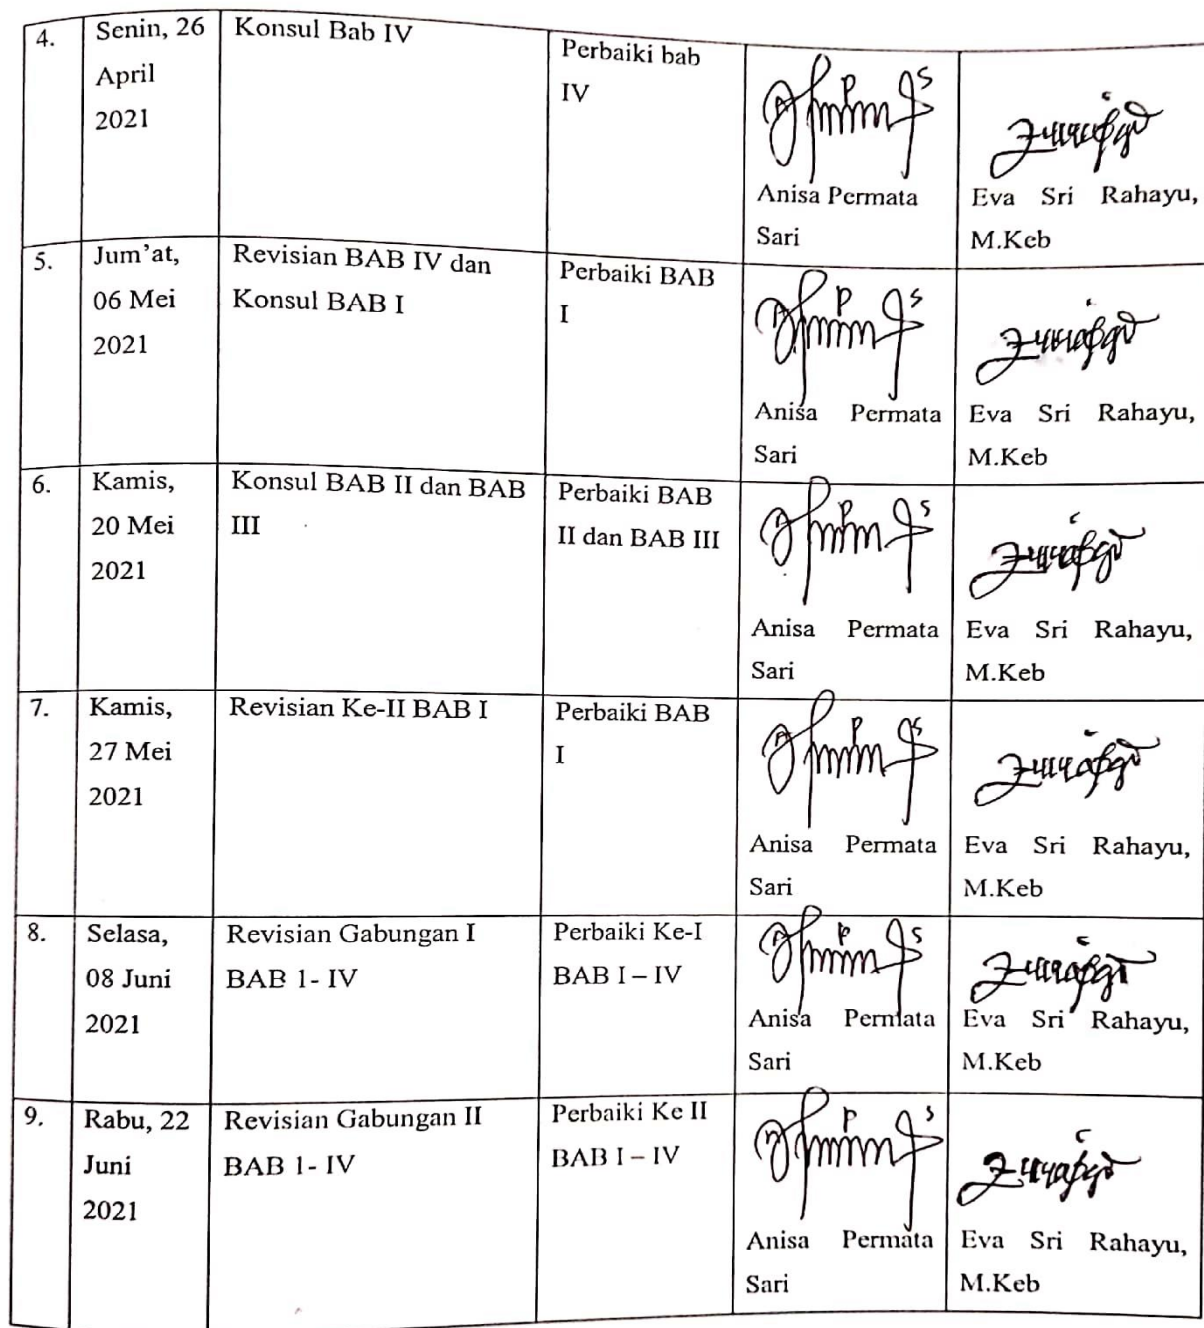 4.
Senin, 26
April
2021
Konsul Bab IV
Perbaiki bab
IV
Anisa Permata
Sari
Eva Sri Rahayu,
M.Keb
5.
Jum'at,
06 Mei
2021
Revisian BAB IV dan
Konsul BAB I
Perbaiki BAB
I
Anisa Permata
Sari
Eva Sri Rahayu,
M.Keb
6.
Kamis,
20 Mei
2021
Konsul BAB II dan BAB
III
Perbaiki BAB
II dan BAB III
Anisa Permata
Sari
Eva Sri Rahayu,
M.Keb
7.
Kamis,
27 Mei
2021
Revisian Ke-II BAB I
Perbaiki BAB
I
Anisa Permata
Sari
Eva Sri Rahayu,
M.Keb
8.
Selasa,
08 Juni
2021
Revisian Gabungan I
BAB 1- IV
Perbaiki Ke-I
BAB I – IV
Anisa Permata
Sari
Eva Sri Rahayu,
M.Keb
9.
Rabu, 22
Juni
2021
Revisian Gabungan II
BAB 1- IV
Perbaiki Ke II
BAB I – IV
Anisa Permata
Sari
Eva Sri Rahayu,
M.Keb